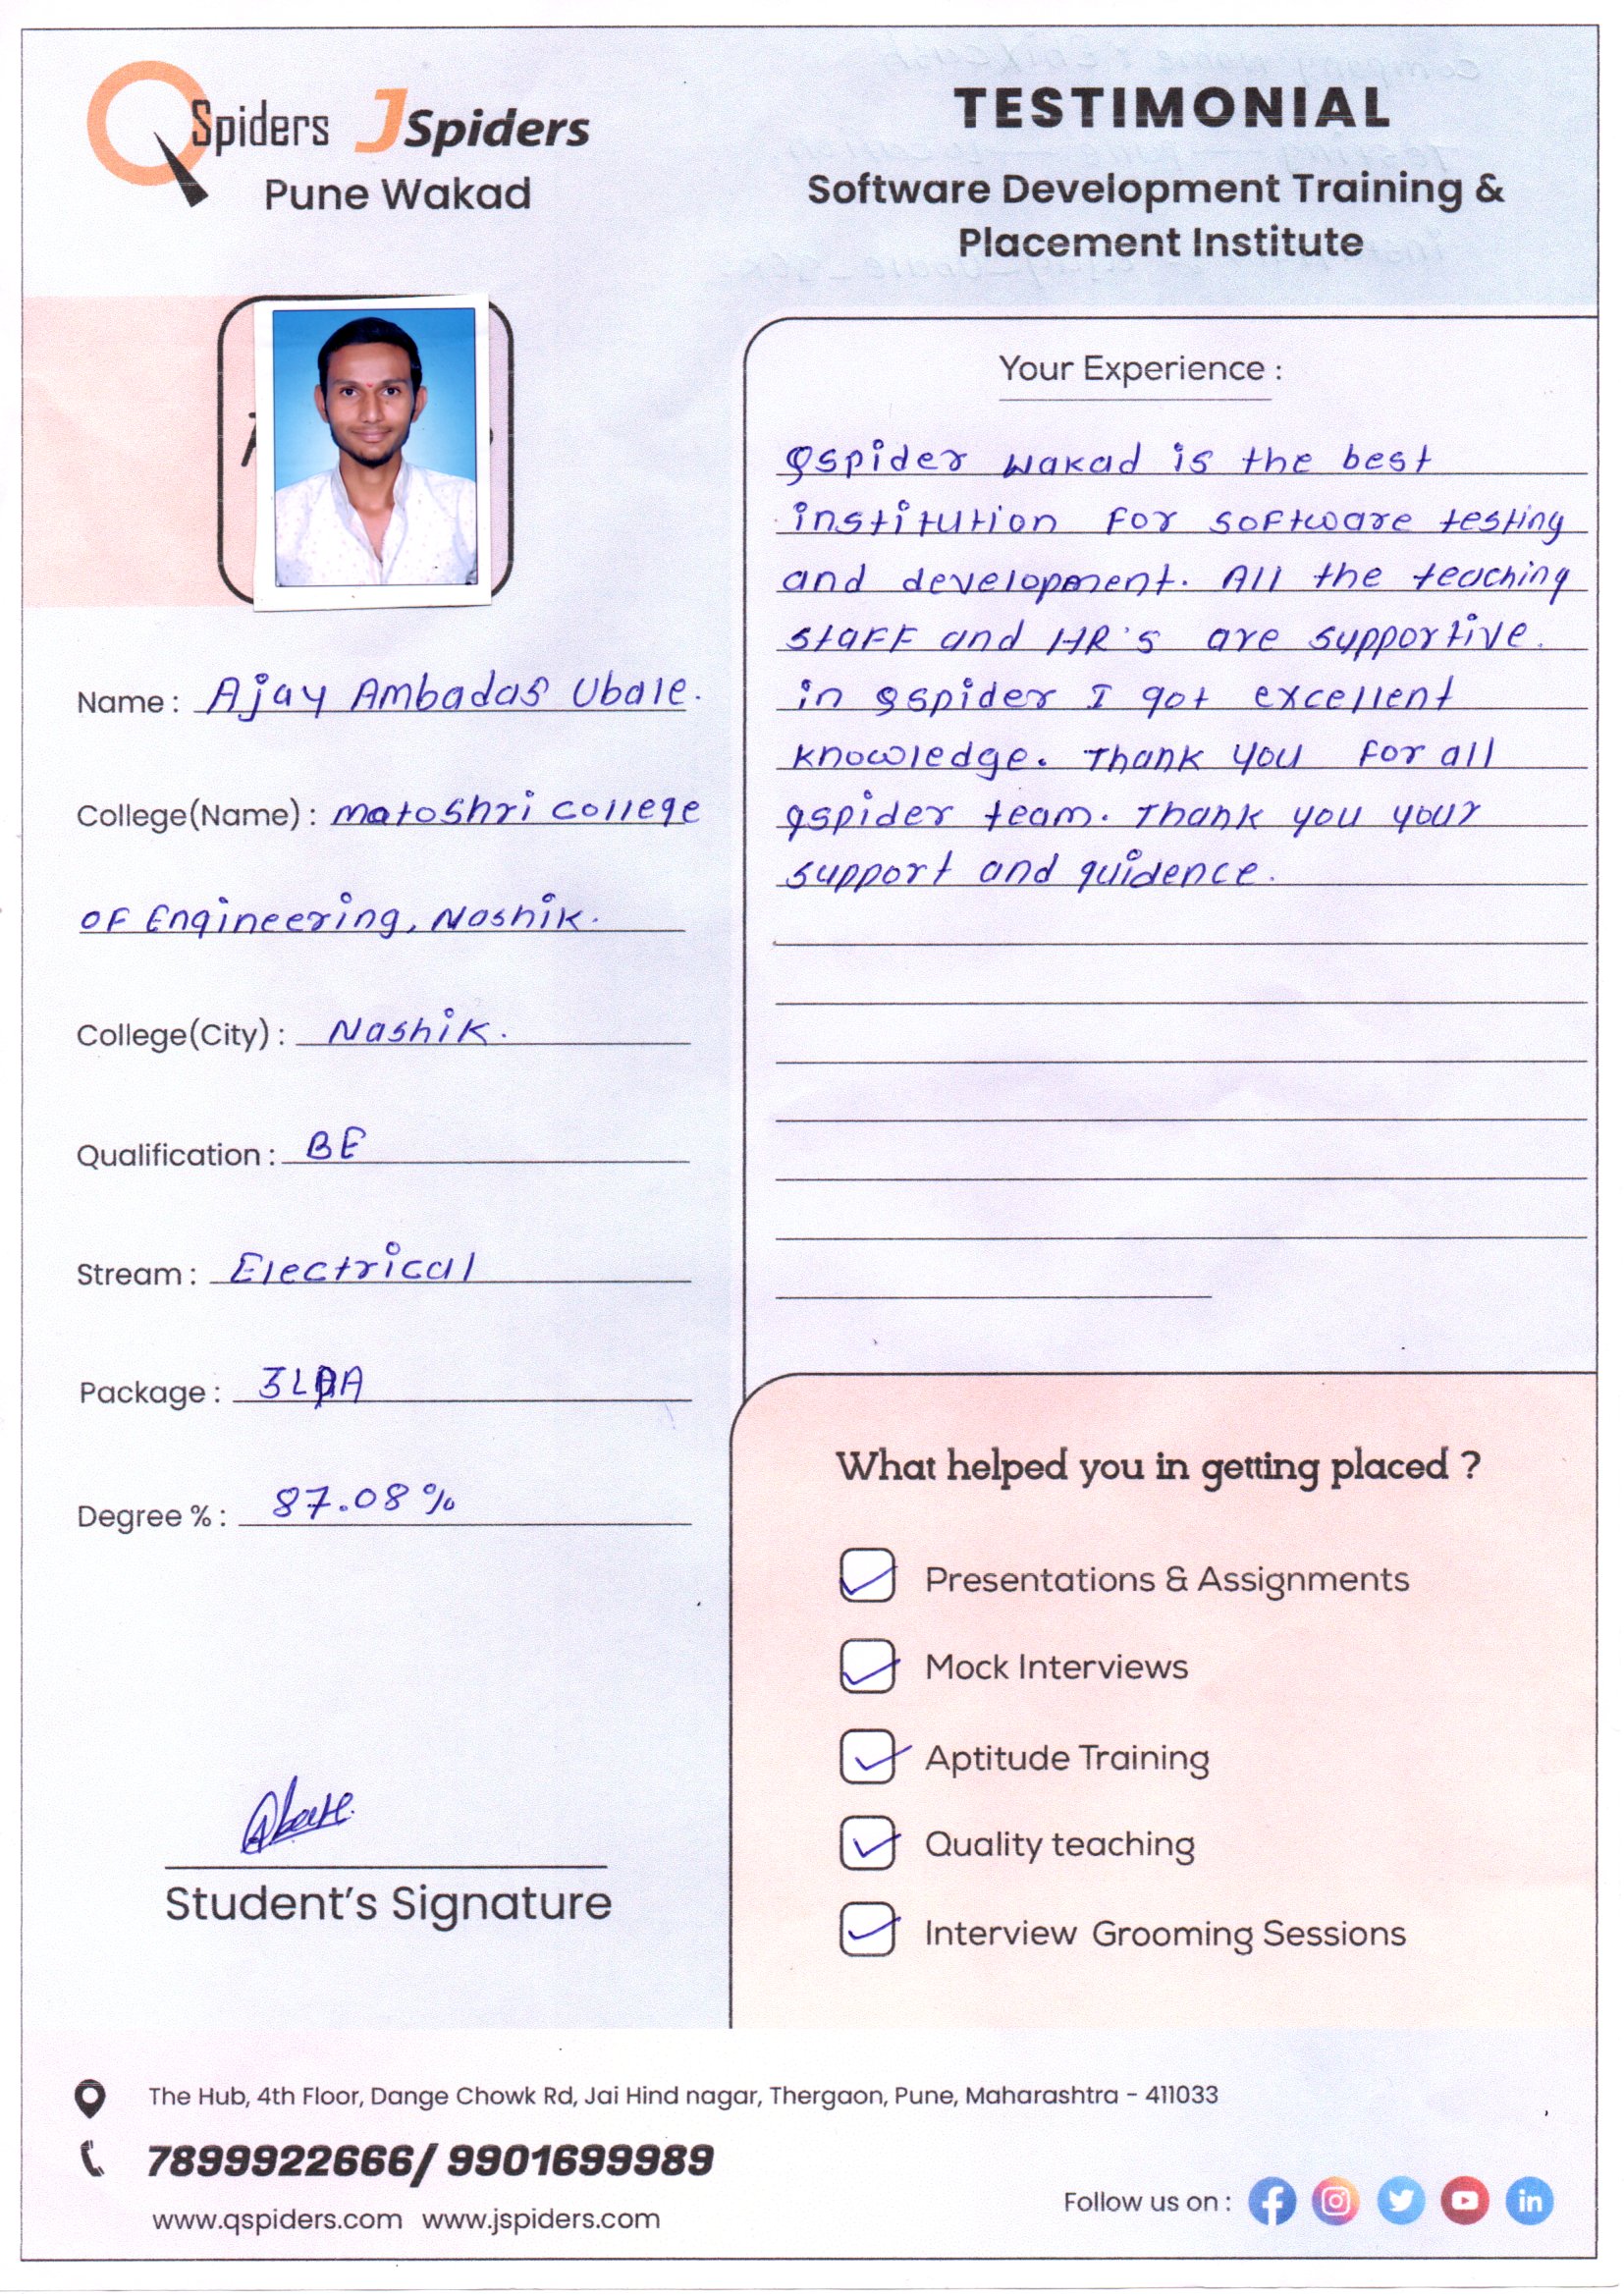 QSpiders JSpiders
Pune Wakad
TESTIMONIAL
Software Development Training &
Placement Institute
Name : Ajay Ambadas Ubale.
College(Name) : Matoshri College
OF Engineering, Nashik.
College(City) : Nashik.
Qualification : BE
Stream : Electrical
Package : 3LPA
Degree % : 87.08 %
Student's Signature
Your Experience :
Qspider Wakad is the best
institution For software testing
and development. All the teaching
staFF and HR's are supportive.
in Qspider I got excellent
knowledge. Thank you For all
qspider team. Thank you your
support and guidence.
What helped you in getting placed ?
Presentations & Assignments
Mock Interviews
Aptitude Training
Quality teaching
Interview Grooming Sessions
The Hub, 4th Floor, Dange Chowk Rd, Jai Hind nagar, Thergaon, Pune, Maharashtra - 411033
7899922666/ 9901699989
www.qspiders.com www.jspiders.com
Follow us on :